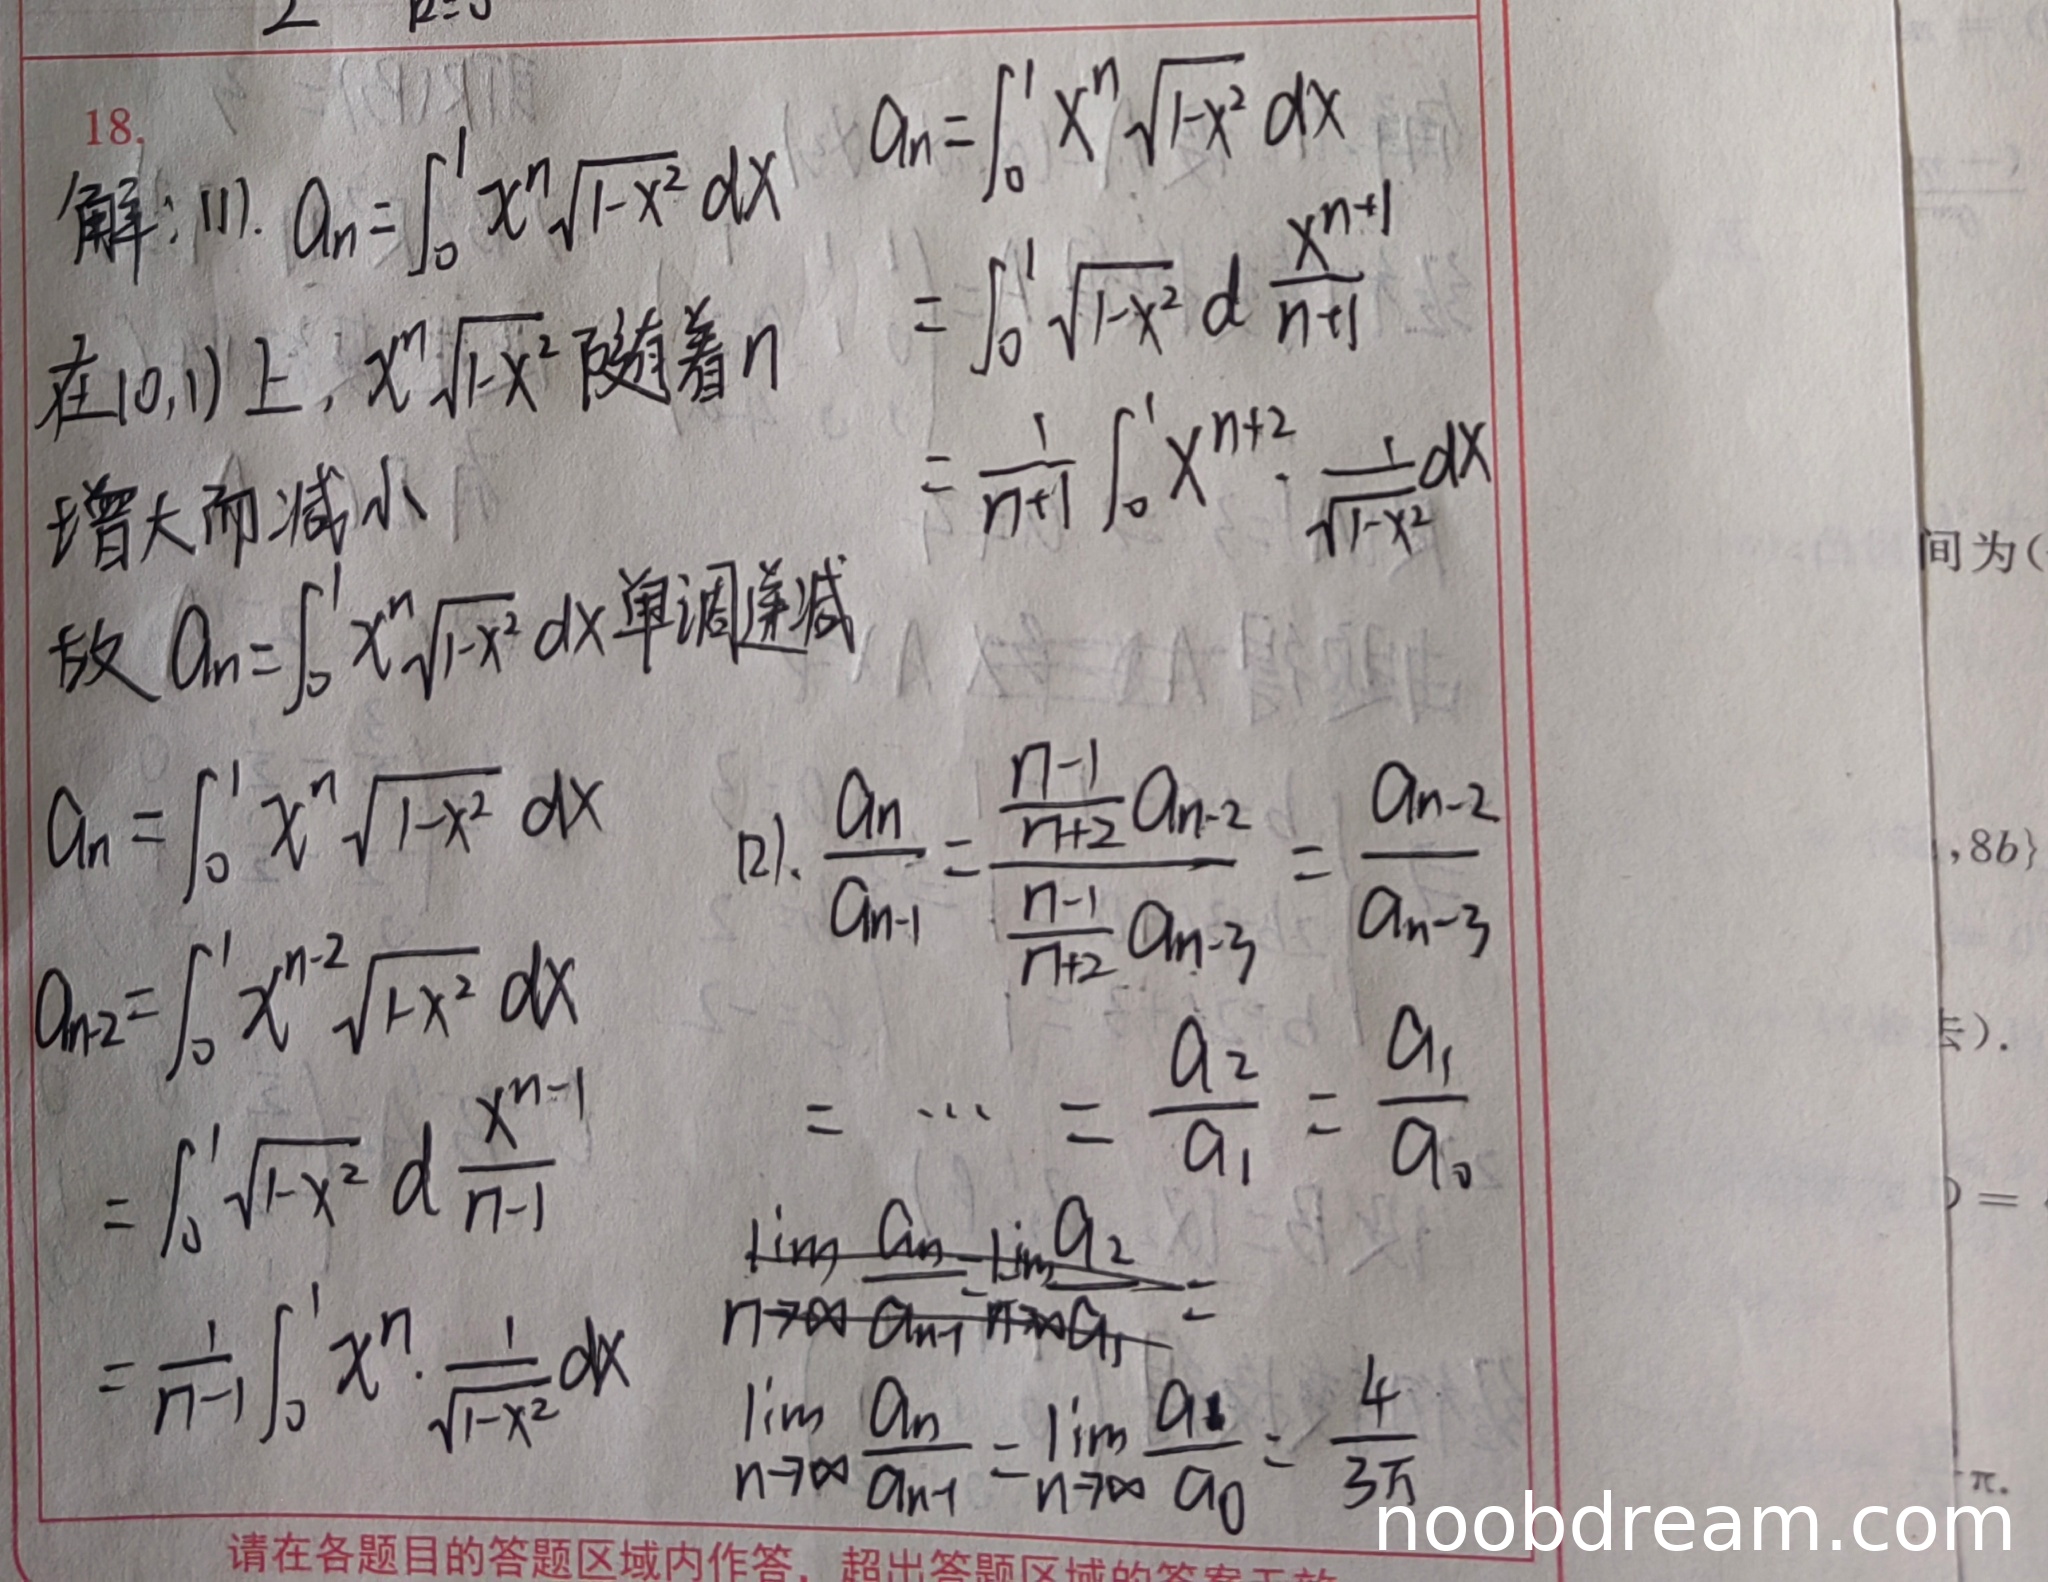 18.
解:(1). aₙ=∫₀¹ xⁿ√(1-x²) dx
在(0,1)上, xⁿ√(1-x²) 随着n
增大而减小
故 aₙ=∫₀¹ xⁿ√(1-x²) dx 单调递减
aₙ = ∫₀¹ xⁿ √(1-x²) dx
aₙ₋₂ = ∫₀¹ xⁿ⁻² √(1-x²) dx
= ∫₀¹ √(1-x²) d xⁿ⁻¹/(n-1)
= 1/(n-1) ∫₀¹ xⁿ · 1/√(1-x²) dx
aₙ = ∫₀¹ xⁿ √(1-x²) dx
= ∫₀¹ √(1-x²) d xⁿ⁺¹/(n+1)
= 1/(n+1) ∫₀¹ xⁿ⁺² · 1/√(1-x²) dx
(2). aₙ/aₙ₋₁ = ((n-1)/(n+2) aₙ₋₂)/((n-1)/(n+2) aₙ₋₃) = aₙ₋₂/aₙ₋₃
= ... = a₂/a₁ = a₁/a₀
lim n→∞ aₙ/aₙ₋₁ = lim n→∞ a₂/a₁ =
lim n→∞ aₙ/aₙ₋₁ = lim n→∞ a₁/a₀ = 4/3π
请在各题目的答题区域内作答，超出答题区域的答案无效
间为(
,8b}
去).
π.
noobdream.com